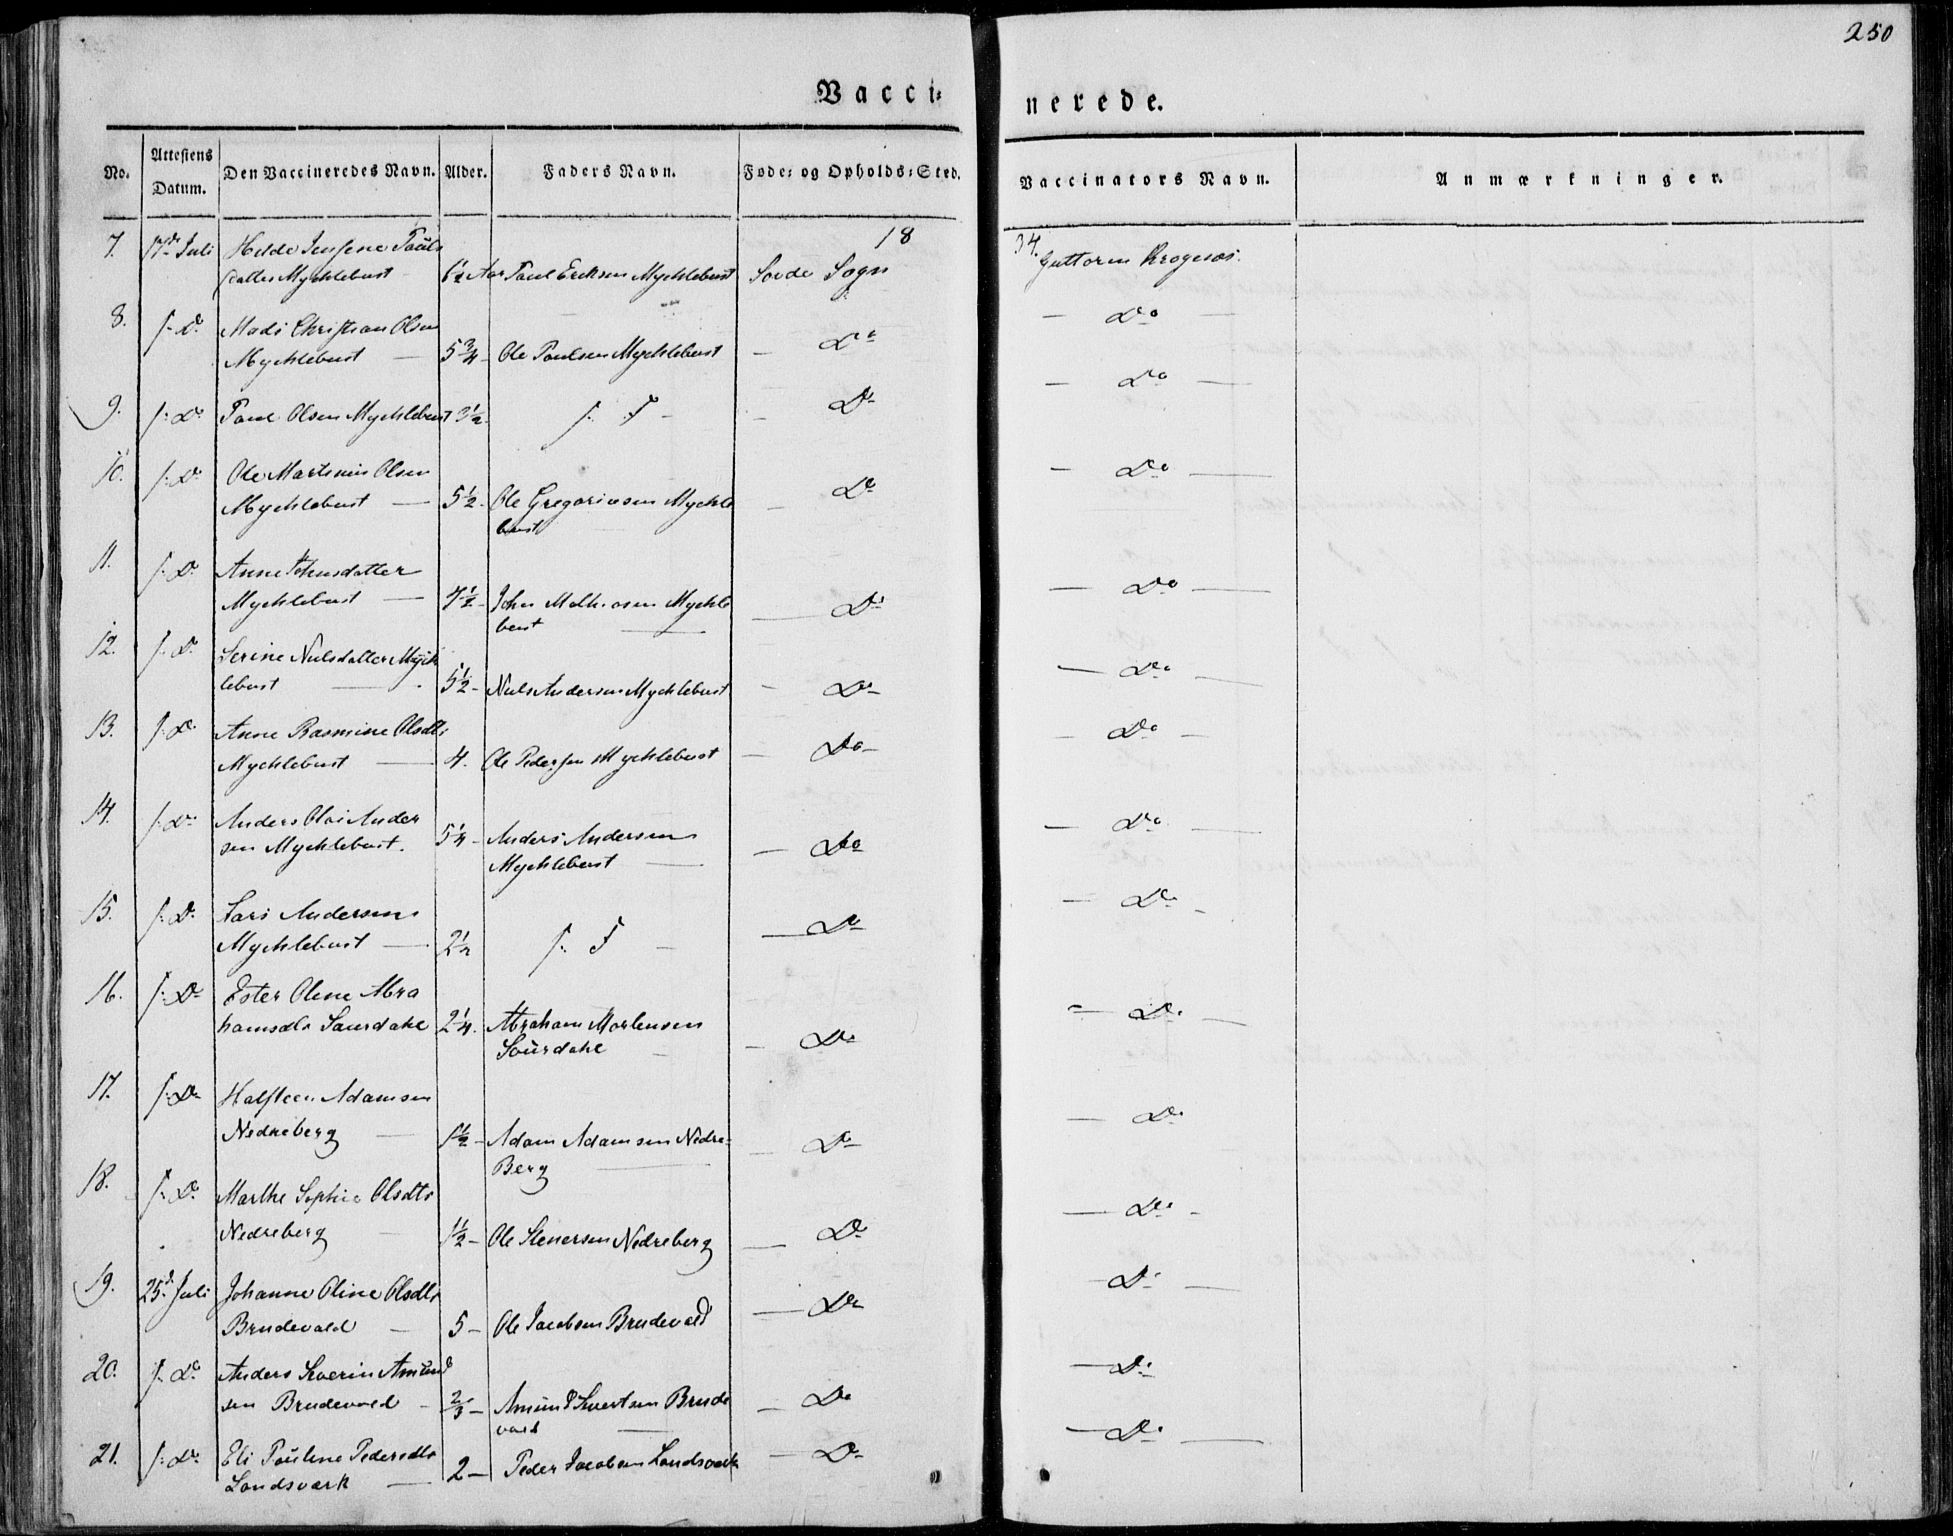 250
Vacci-
nerede.
No.
Attestens Datum.
Den Vaccineredes Navn.
Alder.
Faders Navn.
Føde- og Opholds-Sted.
Vaccinators Navn.
Anmærkninger.
18
34.
7. 17de Juli Helde Jensine Pauls
datter Mychlebust 6½ Aar Paul Ericksen Mychlebust Sovde Sogn Guttorm Krogenæs.
8. f. Do Mads Christian Olsen
Mychlebust — 5¾ - Ole Paulsen Mychlebust — Do — Do —
9. f. Do Paul Olsen Mychlebust 3½ f. F — — Do — Do —
10. f. Do Ole Martinus Olsen
Mychlebust — 5½ - Ole Gregoriusen Mychle — Do — Do —
bust
11. f. Do Anne Johnsdatter
Mychlebust — 7½ - John Mathiasen Mychle — Do — Do —
bust —
12. f. Do Serine Nielsdatter Mych
lebust — 5½ - Niels Andersen Mychlebust — Do — Do —
13. f. Do Anne Rasmine Olsdtr
Mychlebust — 4. Ole Pedersen Mychlebust — Do — Do —
14. f. Do Anders Olai Ander
sen Mychlebust. 5¼ - Anders Andersen — Do — Do —
Mychlebust —
15. f. Do Lars Andersen
Mychlebust — 2½ f. F — — Do — Do —
16. f. Do Ester Oline Abra
hamsdtr Saurdahl 2¼. Abraham Mortensen — Do — Do —
Saurdahl
17. f. Do Halsteen Adamsen
Nedreberg — 1½ - Adam Adamsen Nedre- — Do — Do
Berg —
18. f. Do Marthe Sophie Olsdtr
Nedreberg — 1½ - Ole Stenersen Nedreberg — Do — Do -
19. 25de Juli Johanne Oline Olsdtr
Brudevold — 5 - Ole Jacobsen Brudevold — Do — Do —
20. f. Do Anders Severin Amund
sen Brudevold - ⅔ - Amund Sivertsen Brude — Do — Do
vold —
21. f. Do Eli Pauline Pedersdtr
Landsværk — 2 - Peder Jacobsen Landsværk — Do — Do —